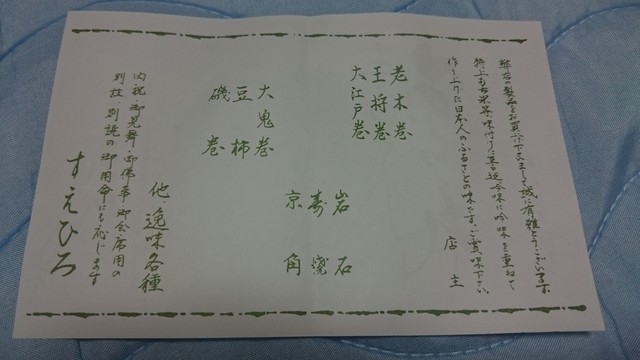 弊店の製品をお買上下さいまして誠に有難とうございます
特上もち米昇、味付けに
吟味を重ねて
作り上げた日本人のふるさとの味です。ご賞味下さい。
店主
老木巻
王将巻
大江戸巻
大鬼巻
豆柿
磯巻
岩石
寿
京角
他、逸味各種
内祝、御見舞、御佛事、御会席用の
別註、別誂の御用命にも応じます
すえひろ